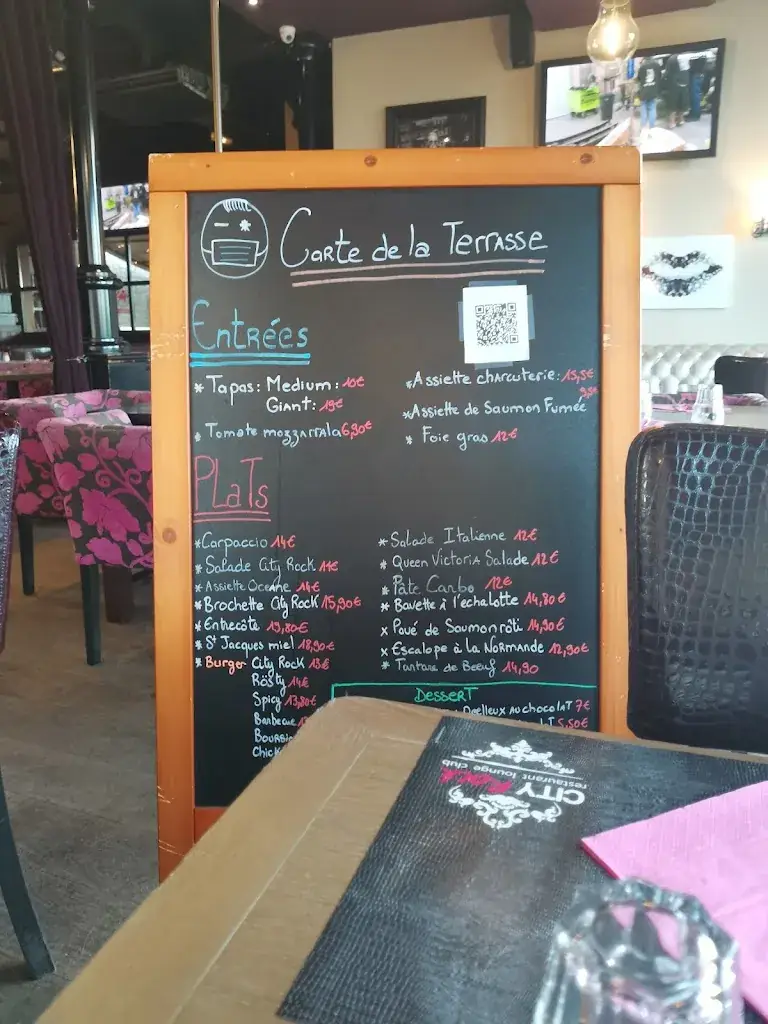 Carte de la Terrasse
Entrées
* Tapas: Medium: 10€
Giant: 19€
* Tomate mozzarrala 6,90€
* Assiette charcuterie: 15,5€
9,5€
* Assiette de Saumon Fumée
* Foie gras 12€
PLaTs
* Carpaccio 14€
* Salade City Rock 14€
* Assiette Oceane 14€
* Brochette City Rock 15,90€
* Entrecôte 19,80€
* St Jacques miel 18,90€
* Burger City Rock 13€
Rösty 14€
Spicy 13,80€
Barbecue
Chick
* Salade Italienne 12€
* Queen Victoria Salade 12€
* Pâte Carbo 12€
* Bavette à l'échalotte 14,80€
x Pavé de Saumon rôti 14,90€
x Escalope à la Normande 12,90€
* Tartare de Boeuf 14,90
DESSERT
Moelleux au chocolat 7€
5,50€
CITY Rock
restaurant lounge club